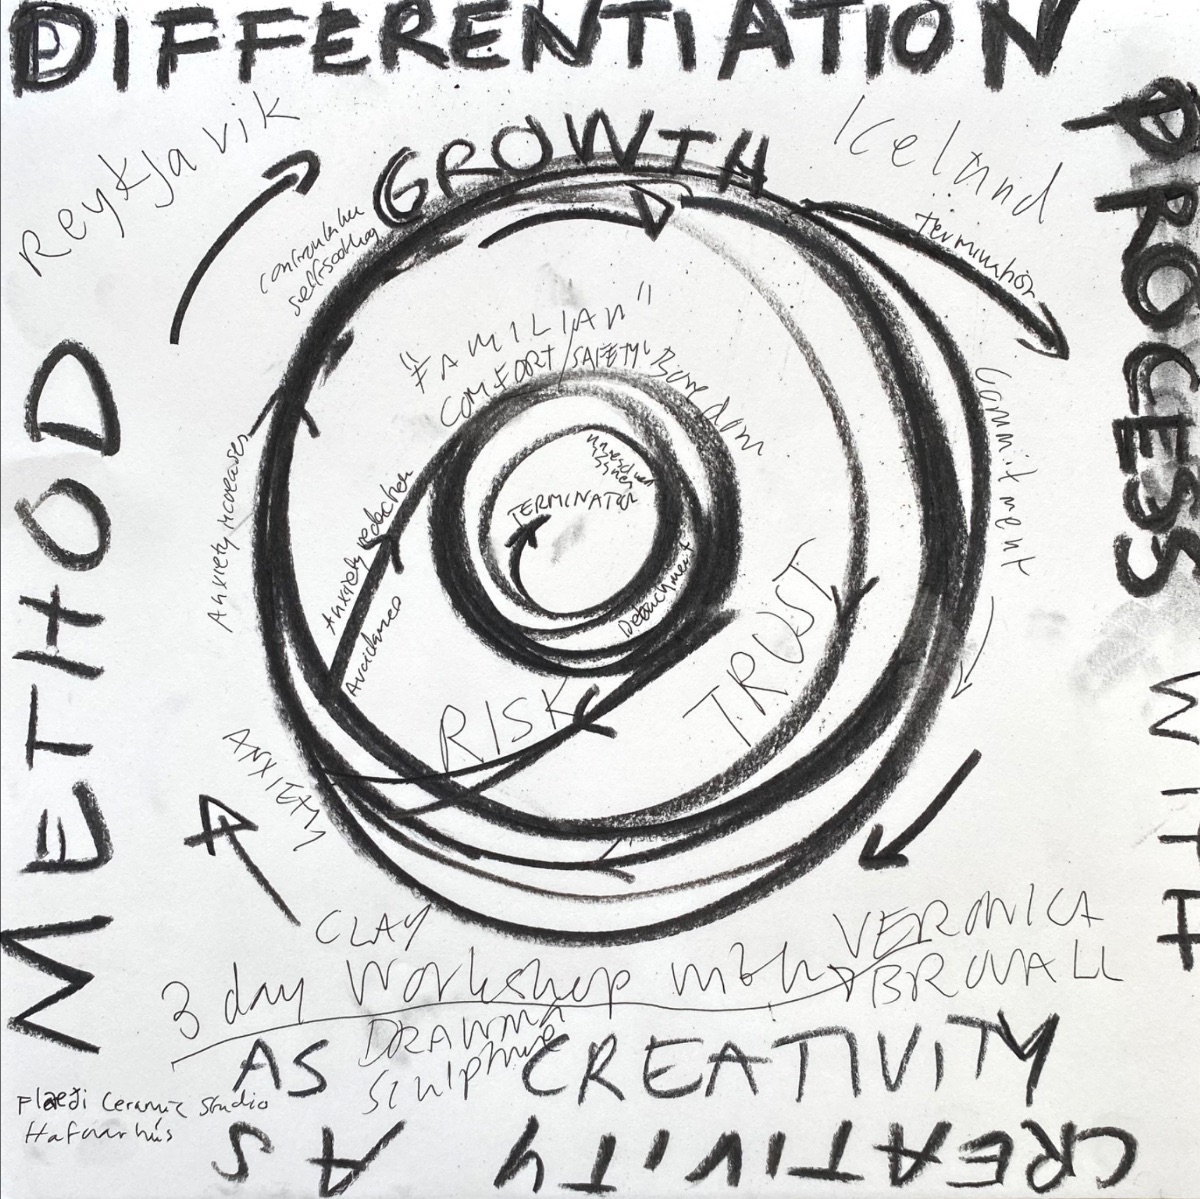 DIFFERENTIATION
PROCESS WITH
CREATIVITY AS
METHOD
GROWTH
Reykjavik
Iceland
Termination
Commitment
"FAMILIAR"
COMFORT/SAFETY Boredom
TERMINATION
Detachment
Anxiety increases
Anxiety reduction
Avoidance
TRUST
RISK
ANXIETY
CLAY
3 day Workshop with VERONICA
BROVALL
DRAWING
Sculpture
AS CREATIVITY
Flæði Ceramic Studio
Hafnarhús